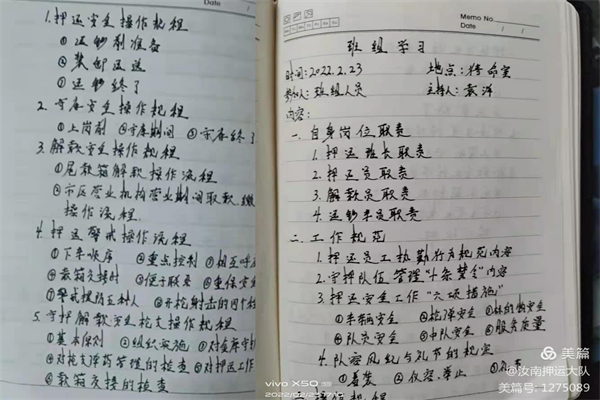 Date
1.押运安全操作规程
①运钞前准备
②装卸运送
③运钞终了
2.守库安全操作规程
①上岗前 ②守库期间 ③守库终了
3.解款安全操作规程
①尾款箱解款操作流程
②市区营业机构营业期间取款、缴
操作流程.
4.押运警戒操作流程
①下车顺序 ②重点控制 ③相互呼应
④款箱交接时 ⑤便于联系 ⑥重保安全
⑦警戒提防五种人 ⑧开枪射击的四个程
5.守护解款安全枪支操作规程
①基本原则 ②组织实施 ③对金库守护
④对枪支弹药管理的检查 ⑤对押运工作
⑥款箱交接的检查
Memo No.
Date / /
班组学习
时间:2022.2.23 地点:待命室
参加人:班组人员 主持人:袁洋
内容:
一.自身岗位职责
1.押运班长职责
2.押运员职责
3.解款员职责
4.运钞车员职责
二.工作规范
1.押运员工执勤行为规范内容
2.守押队伍管理"十条禁令"内容
3.押运安全工作"六项措施"
①车辆安全 ②枪弹安全 ③标的物安全
④队员安全 ⑤中队安全 ⑥服务质量
4.队容风纪与礼节的规定
①着装 ②仪容、举止 ③礼节
操作规程
vivo X50
2022/02/23
美篇
@汝南押运大队
美篇号: 1275089